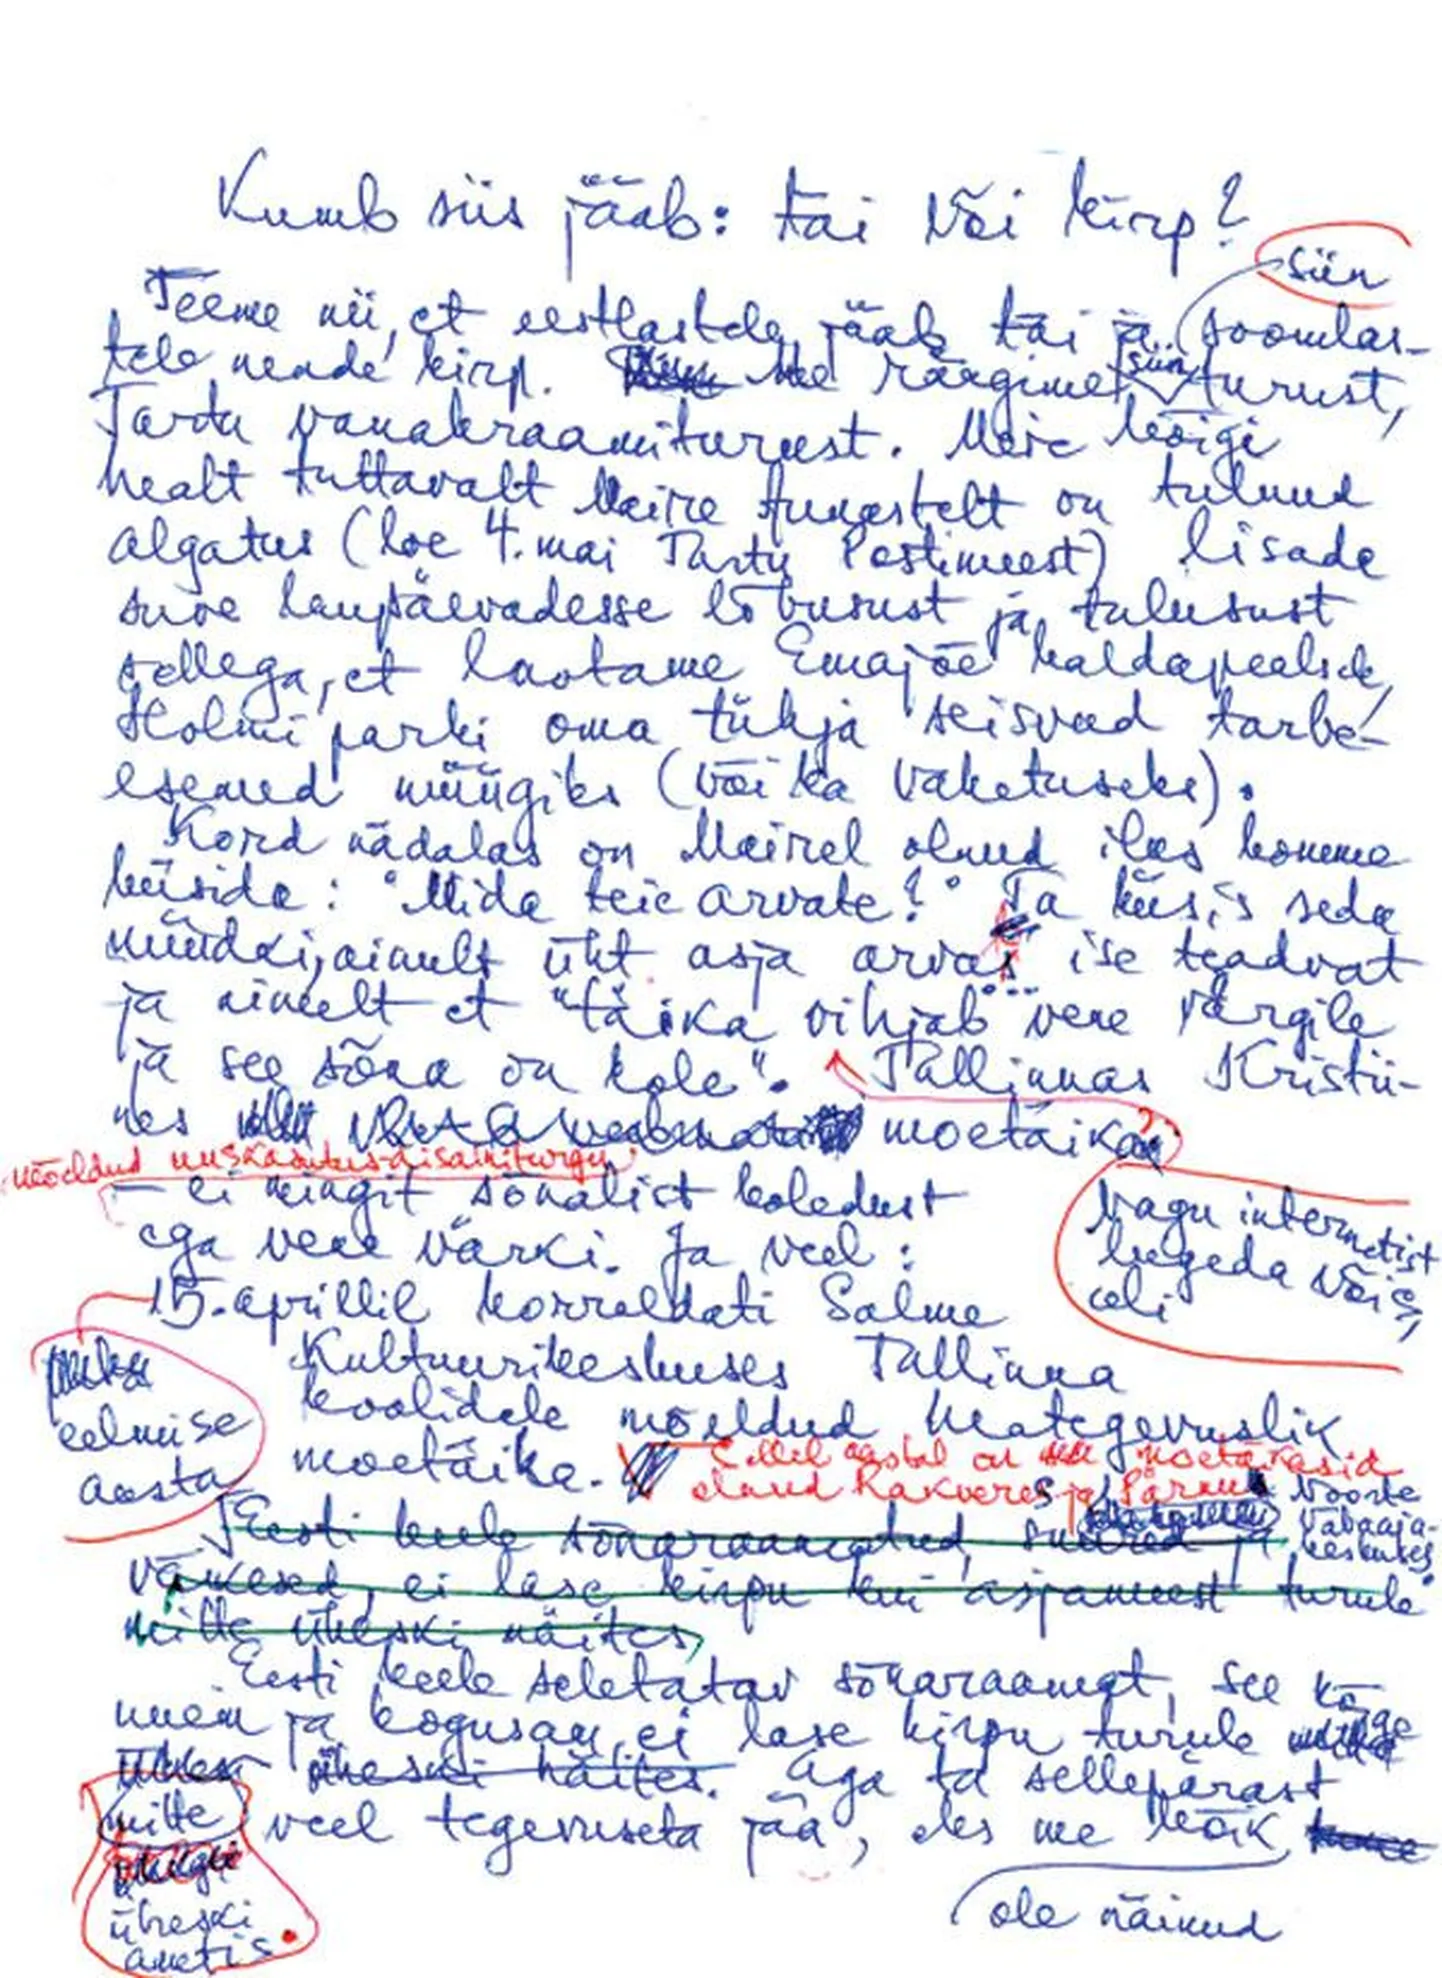 Kumb siis jääb: täi või kirp?
siin
Teeme nii, et eestlastele jääb täi ja soomlas-
tele nende kirp. Me räägime siin turust,
Tartu vanakraamiturust. Meie kõigi
healt tuttavalt Maire on tulnud
algatus (loe 4. mai Tartu Postimeest) lisada
suve laupäevadesse lõbusust ja tulusust
sellega, et laotame Emajõe kaldapealsele,
Holmi parki oma tühja seisvad tarbe-
esemed müügiks (või ka vahetuseks).
Kord nädalas on Mairel olnud ilus komme
küsida: "Mida teie arvate?" Ta küsis seda
nüüdki, ainult üht asja arvas ise teadvat
ja nimelt et "täika vihjab vene värgile
ja see sõna on kole". Tallinnas Kristii-
nes moetäika
mõeldud uuskasutusdisainiturgu
– ei mingit sõnalist koledust
ega vene värki. Ja veel:
Nagu internetist
lugeda võis,
oli
15. aprillil korraldati Salme
Kultuurikeskuses Tallinna
koolidele mõeldud heategevuslik
moetäika.
eelmise
aasta
Sellel aastal on moetäikasid
olnud Rakveres ja Pärnu Noorte
Vabaaja-
keskuses
Eesti keele sõnaraamatud, suured ja
väikesed, ei lase kirpu kui asjameest turule
mitte üheski näites
Eesti keele seletatav sõnaraamat, see kõige
uuem ja kogusam, ei lase kirpu turule
üheski näites. Ega ta sellepärast
mitte
üheski
ametis.
veel tegevuseta jää, eks me kõik
ole näinud